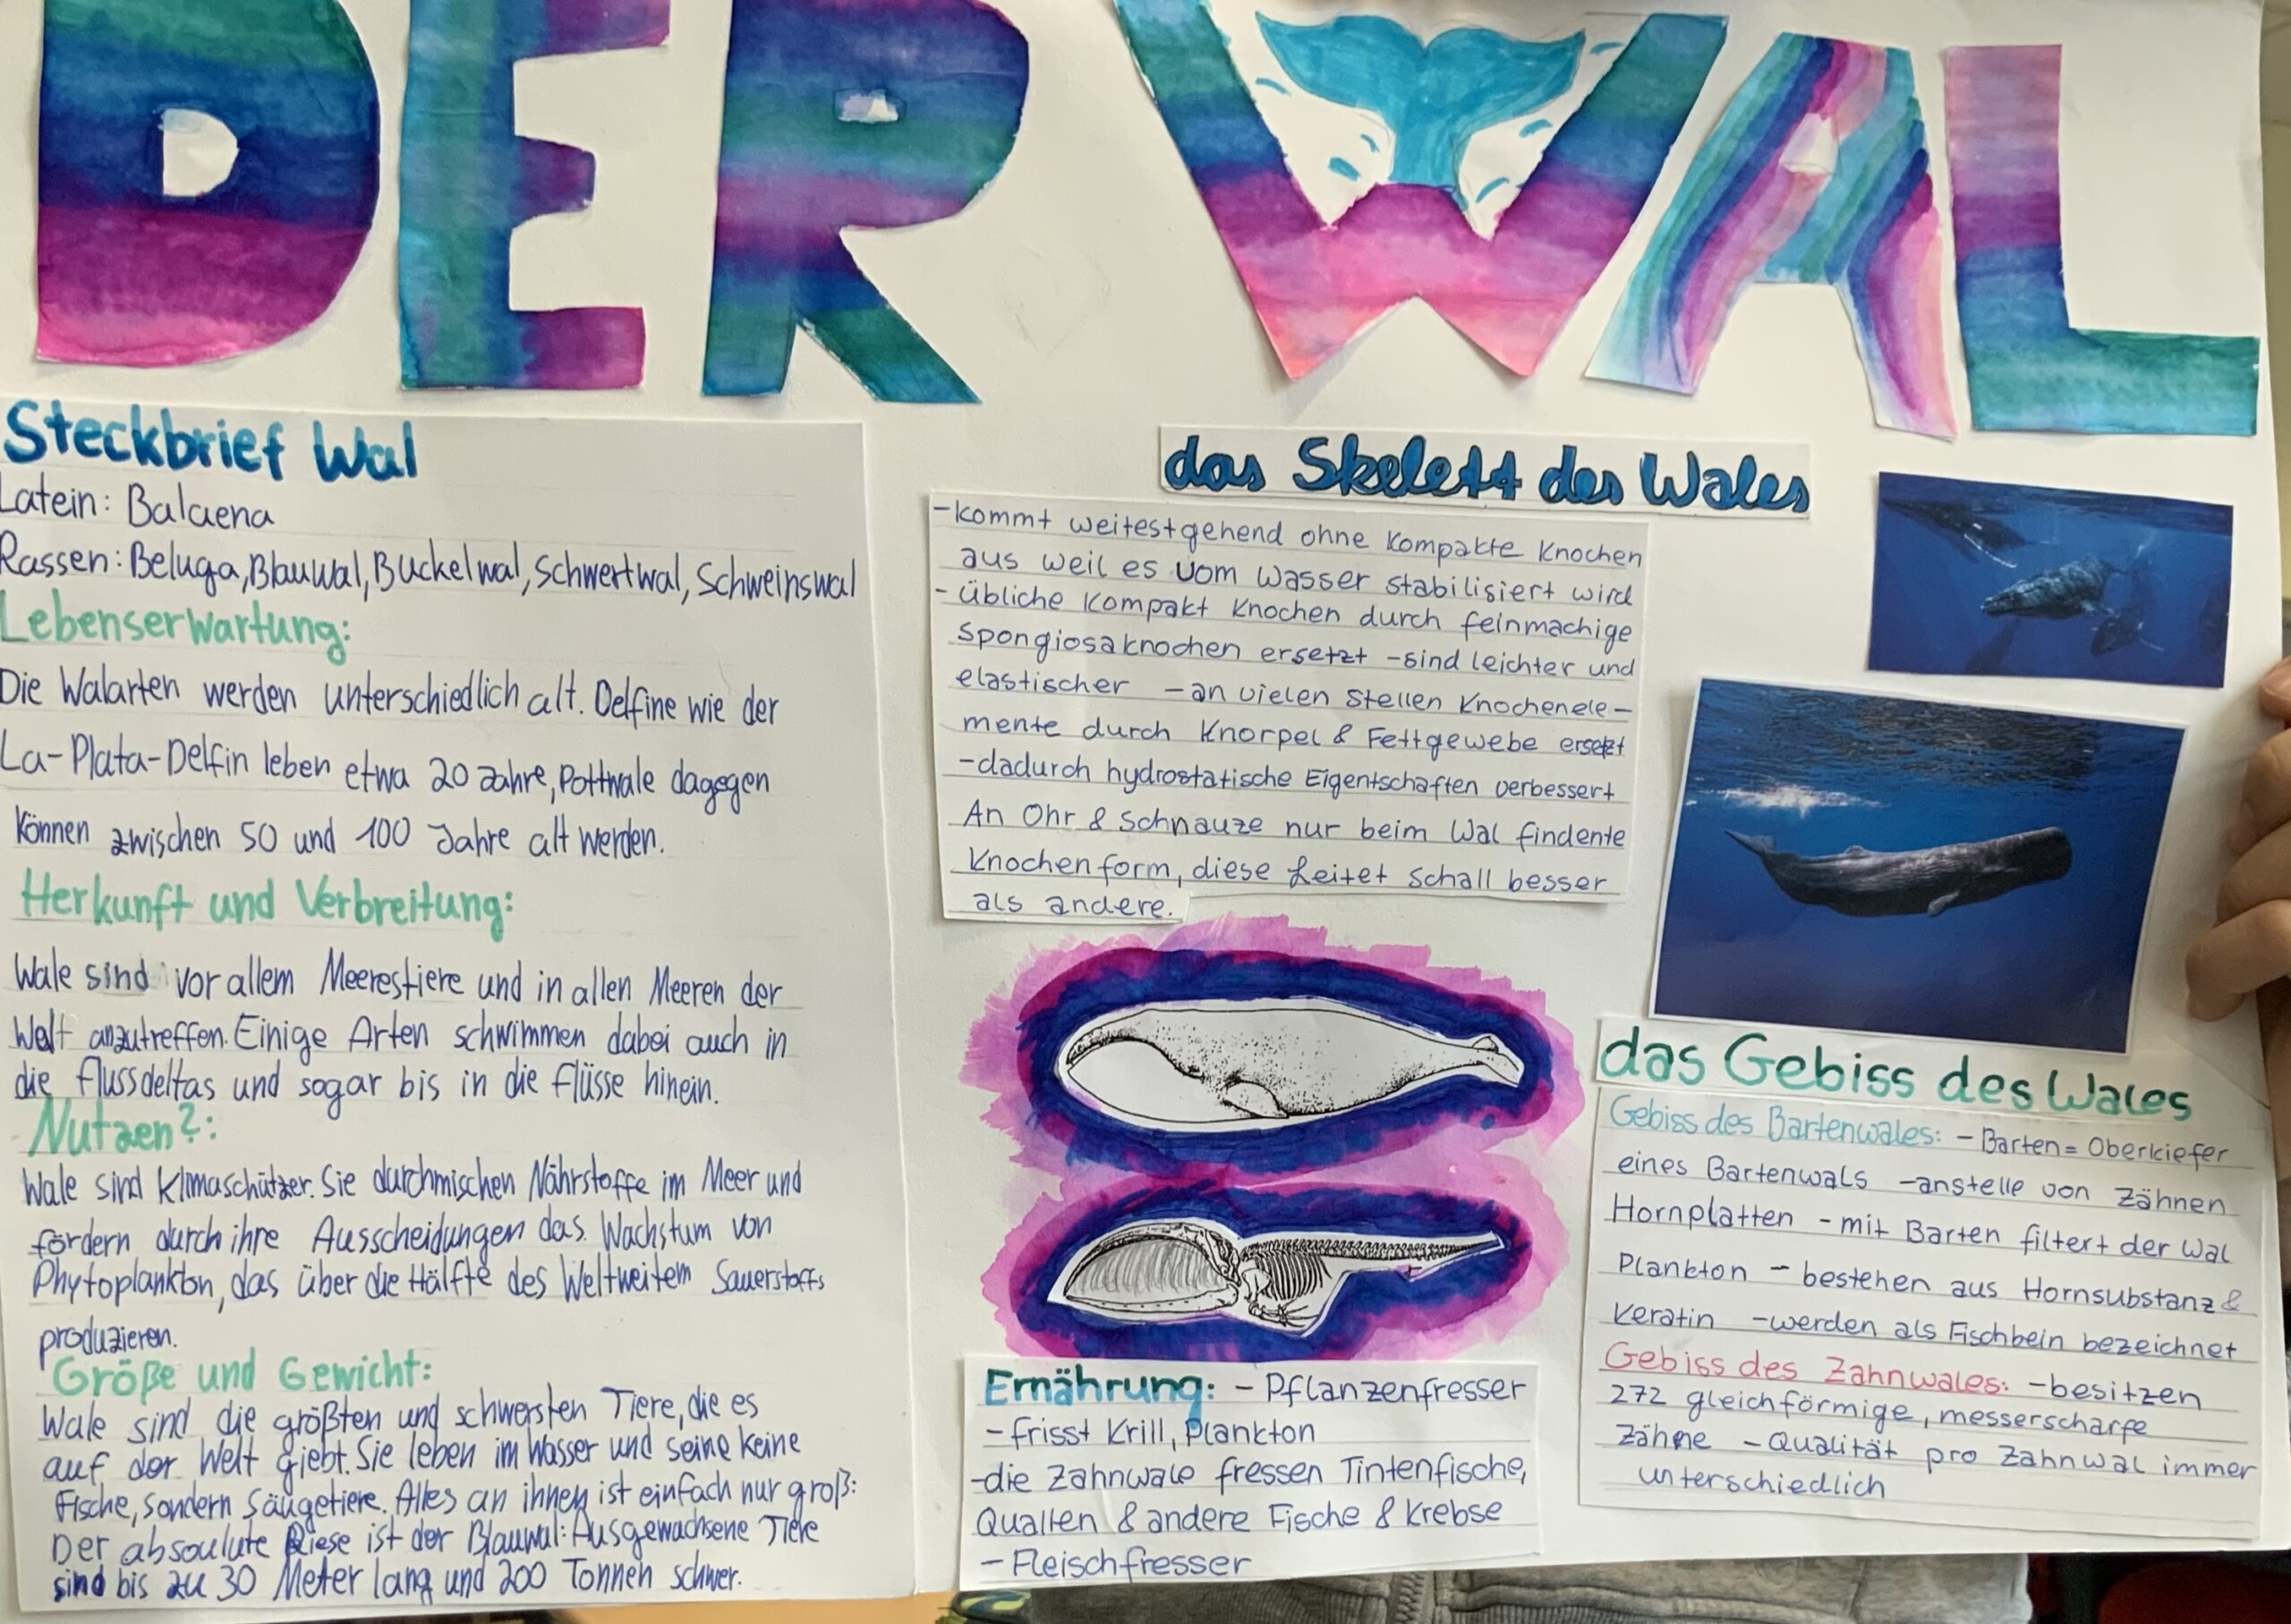 DER WAL
Steckbrief Wal
Latein: Balaena
Rassen: Beluga, Blauwal, Buckelwal, Schwertwal, Schweinswal
Lebenserwartung:
Die Walarten werden unterschiedlich alt. Delfine wie der
La-Plata-Delfin leben etwa 20 Jahre, Pottwale dagegen
können zwischen 50 und 100 Jahre alt werden.
Herkunft und Verbreitung:
Wale sind vor allem Meerestiere und in allen Meeren der
Welt anzutreffen. Einige Arten schwimmen dabei auch in
die Flussdeltas und sogar bis in die Flüsse hinein.
Nutzen?:
Wale sind Klimaschützer. Sie durchmischen Nährstoffe im Meer und
fördern durch ihre Ausscheidungen das Wachstum von
Phytoplankton, das über die Hälfte des Weltweitem Sauerstoffs
produzieren.
Größe und Gewicht:
Wale sind die größten und schwersten Tiere, die es
auf der Welt giebt. Sie leben im Wasser und seine keine
Fische, sondern Säugetiere. Alles an ihnen ist einfach nur groß:
Der absoulute Riese ist der Blauwal: Ausgewachsene Tiere
sind bis zu 30 Meter lang und 200 Tonnen schwer.
das Skelett des Wales
-kommt weitestgehend ohne kompakte Knochen
aus weil es vom Wasser stabilisiert wird
- übliche Kompakt Knochen durch feinmachige
Spongiosaknochen ersetzt -sind leichter und
elastischer -an vielen Stellen Knochenele-
mente durch Knorpel & Fettgewebe ersetzt
-dadurch hydrostatische Eigentschaften verbessert
An Ohr & Schnauze nur beim Wal findente
Knochenform, diese Leitet Schall besser
als andere.
Ernährung: - Pflanzenfresser
- frisst Krill, Plankton
-die Zahnwale fressen Tintenfische,
Quallen & andere Fische & Krebse
- Fleischfresser
das Gebiss des Wales
Gebiss des Bartenwales: - Barten = Oberkiefer
eines Bartenwals -anstelle von Zähnen
Hornplatten - mit Barten filtert der Wal
Plankton - bestehen aus Hornsubstanz &
Keratin -werden als Fischbein bezeichnet
Gebiss des Zahnwales: -besitzen
272 gleichförmige, messerscharfe
Zähne - Qualität pro Zahnwal immer
unterschiedlich